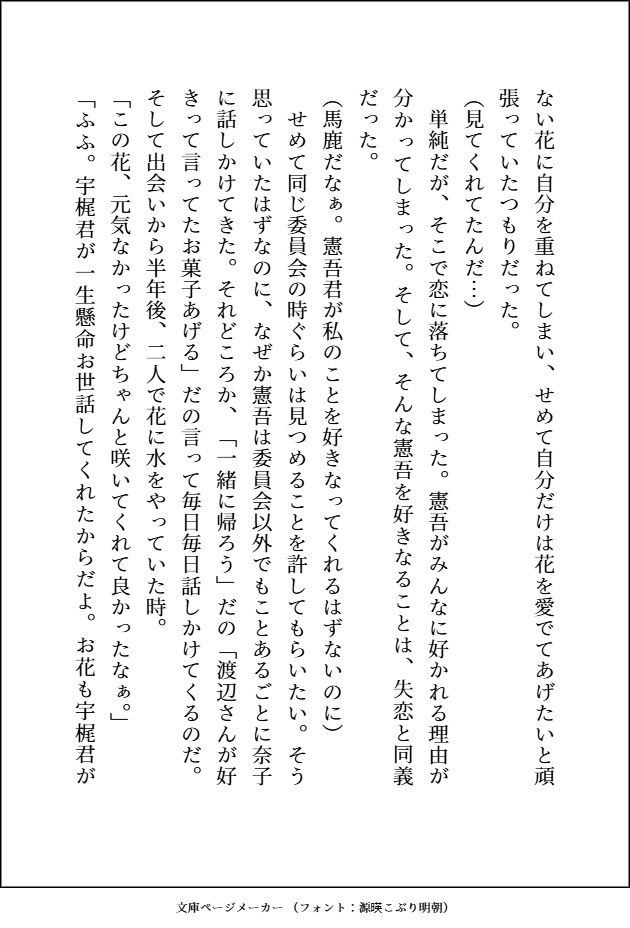 ない花に自分を重ねてしまい、せめて自分だけは花を愛でてあげたいと頑
張っていたつもりだった。
(見てくれてたんだ…)
　単純だが、そこで恋に落ちてしまった。憲吾がみんなに好かれる理由が
分かってしまった。そして、そんな憲吾を好きなることは、失恋と同義
だった。
(馬鹿だなぁ。憲吾君が私のことを好きなってくれるはずないのに)
　せめて同じ委員会の時ぐらいは見つめることを許してもらいたい。そう
思っていたはずなのに、なぜか憲吾は委員会以外でもことあるごとに奈子
に話しかけてきた。それどころか、「一緒に帰ろう」だの「渡辺さんが好
きって言ってたお菓子あげる」だの言って毎日毎日話しかけてくるのだ。
そして出会いから半年後、二人で花に水をやっていた時。
「この花、元気なかったけどちゃんと咲いてくれて良かったなぁ。」
「ふふ。宇梶君が一生懸命お世話してくれたからだよ。お花も宇梶君が
文庫ページメーカー（フォント：源暎こぶり明朝）